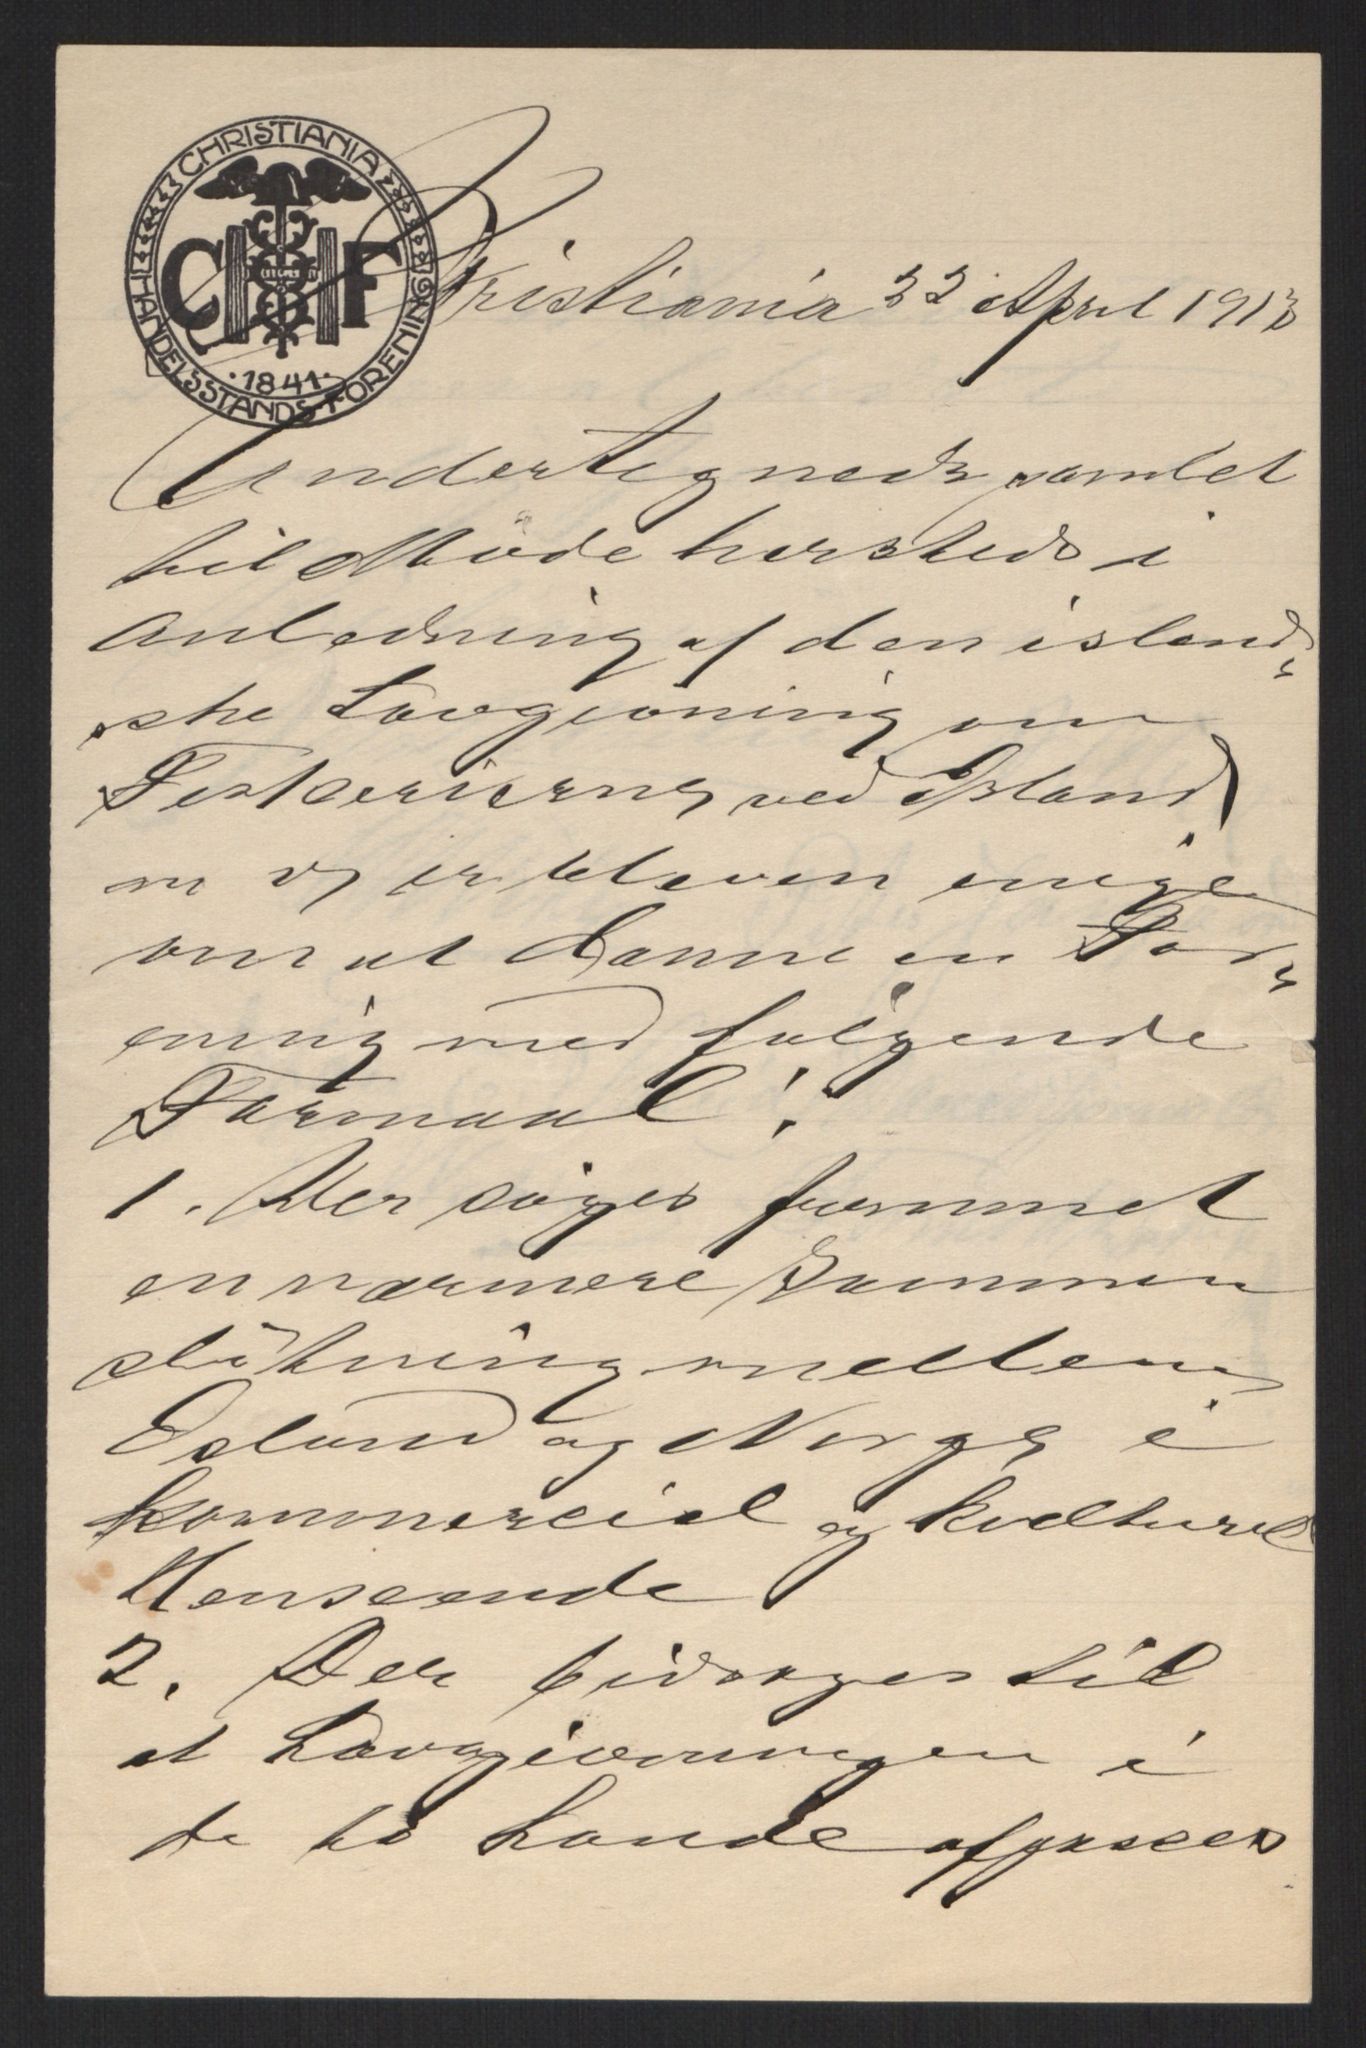 CHRISTIANIA
HANDELSSTANDS FORENING
C H F
1841
Kristiania 22 April 1913
Undertegnede samlet
til Møde hersteds i
Anledning af den island-
ske Lovgivning om
Fiskerierne ved Island
er er bleven enige
om at danne en For-
ening med følgende
Formaal:
1. Der søges fremmet
en nærmere Sammen
slutning mellem
Island og Norge i
kommerciel og kulturel
Henseende
2. Der bidrages til
at Lovgivningen i
de to Lande afpasses